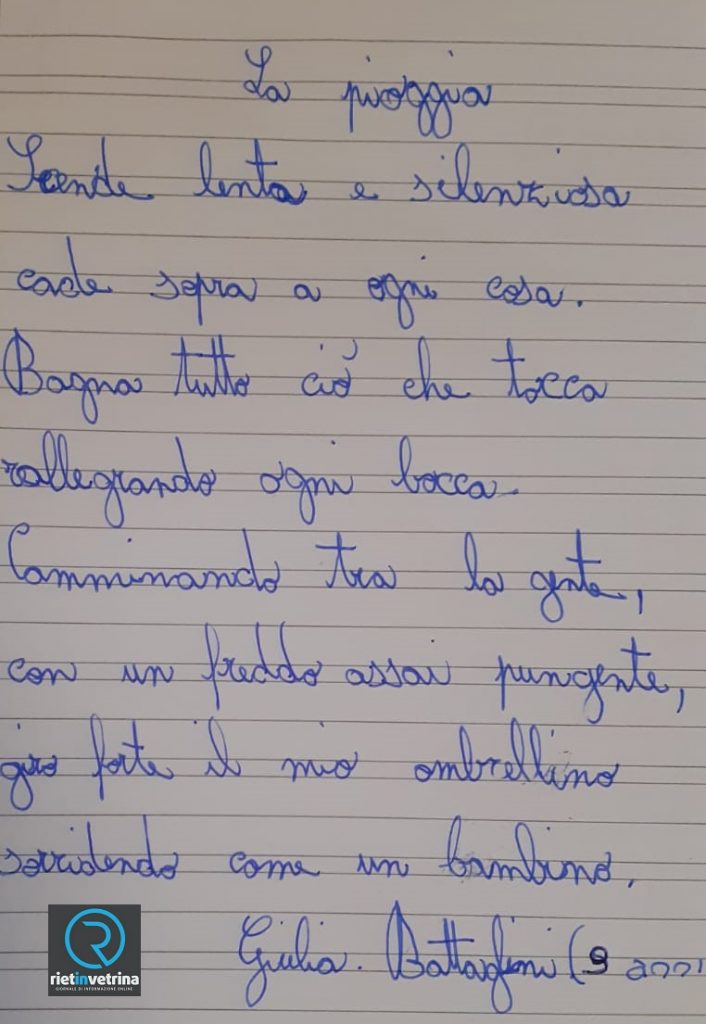 La pioggia
Scende lenta e silenziosa
cade sopra a ogni cosa.
Bagna tutto ciò che tocca
rallegrando ogni bocca.
Camminando tra la gente,
con un freddo assai pungente,
giro forte il mio ombrellino
sorridendo come un bambino.
Giulia. Battaglini (9 anni
rietinvetrina
GIORNALE DI INFORMAZIONE ONLINE